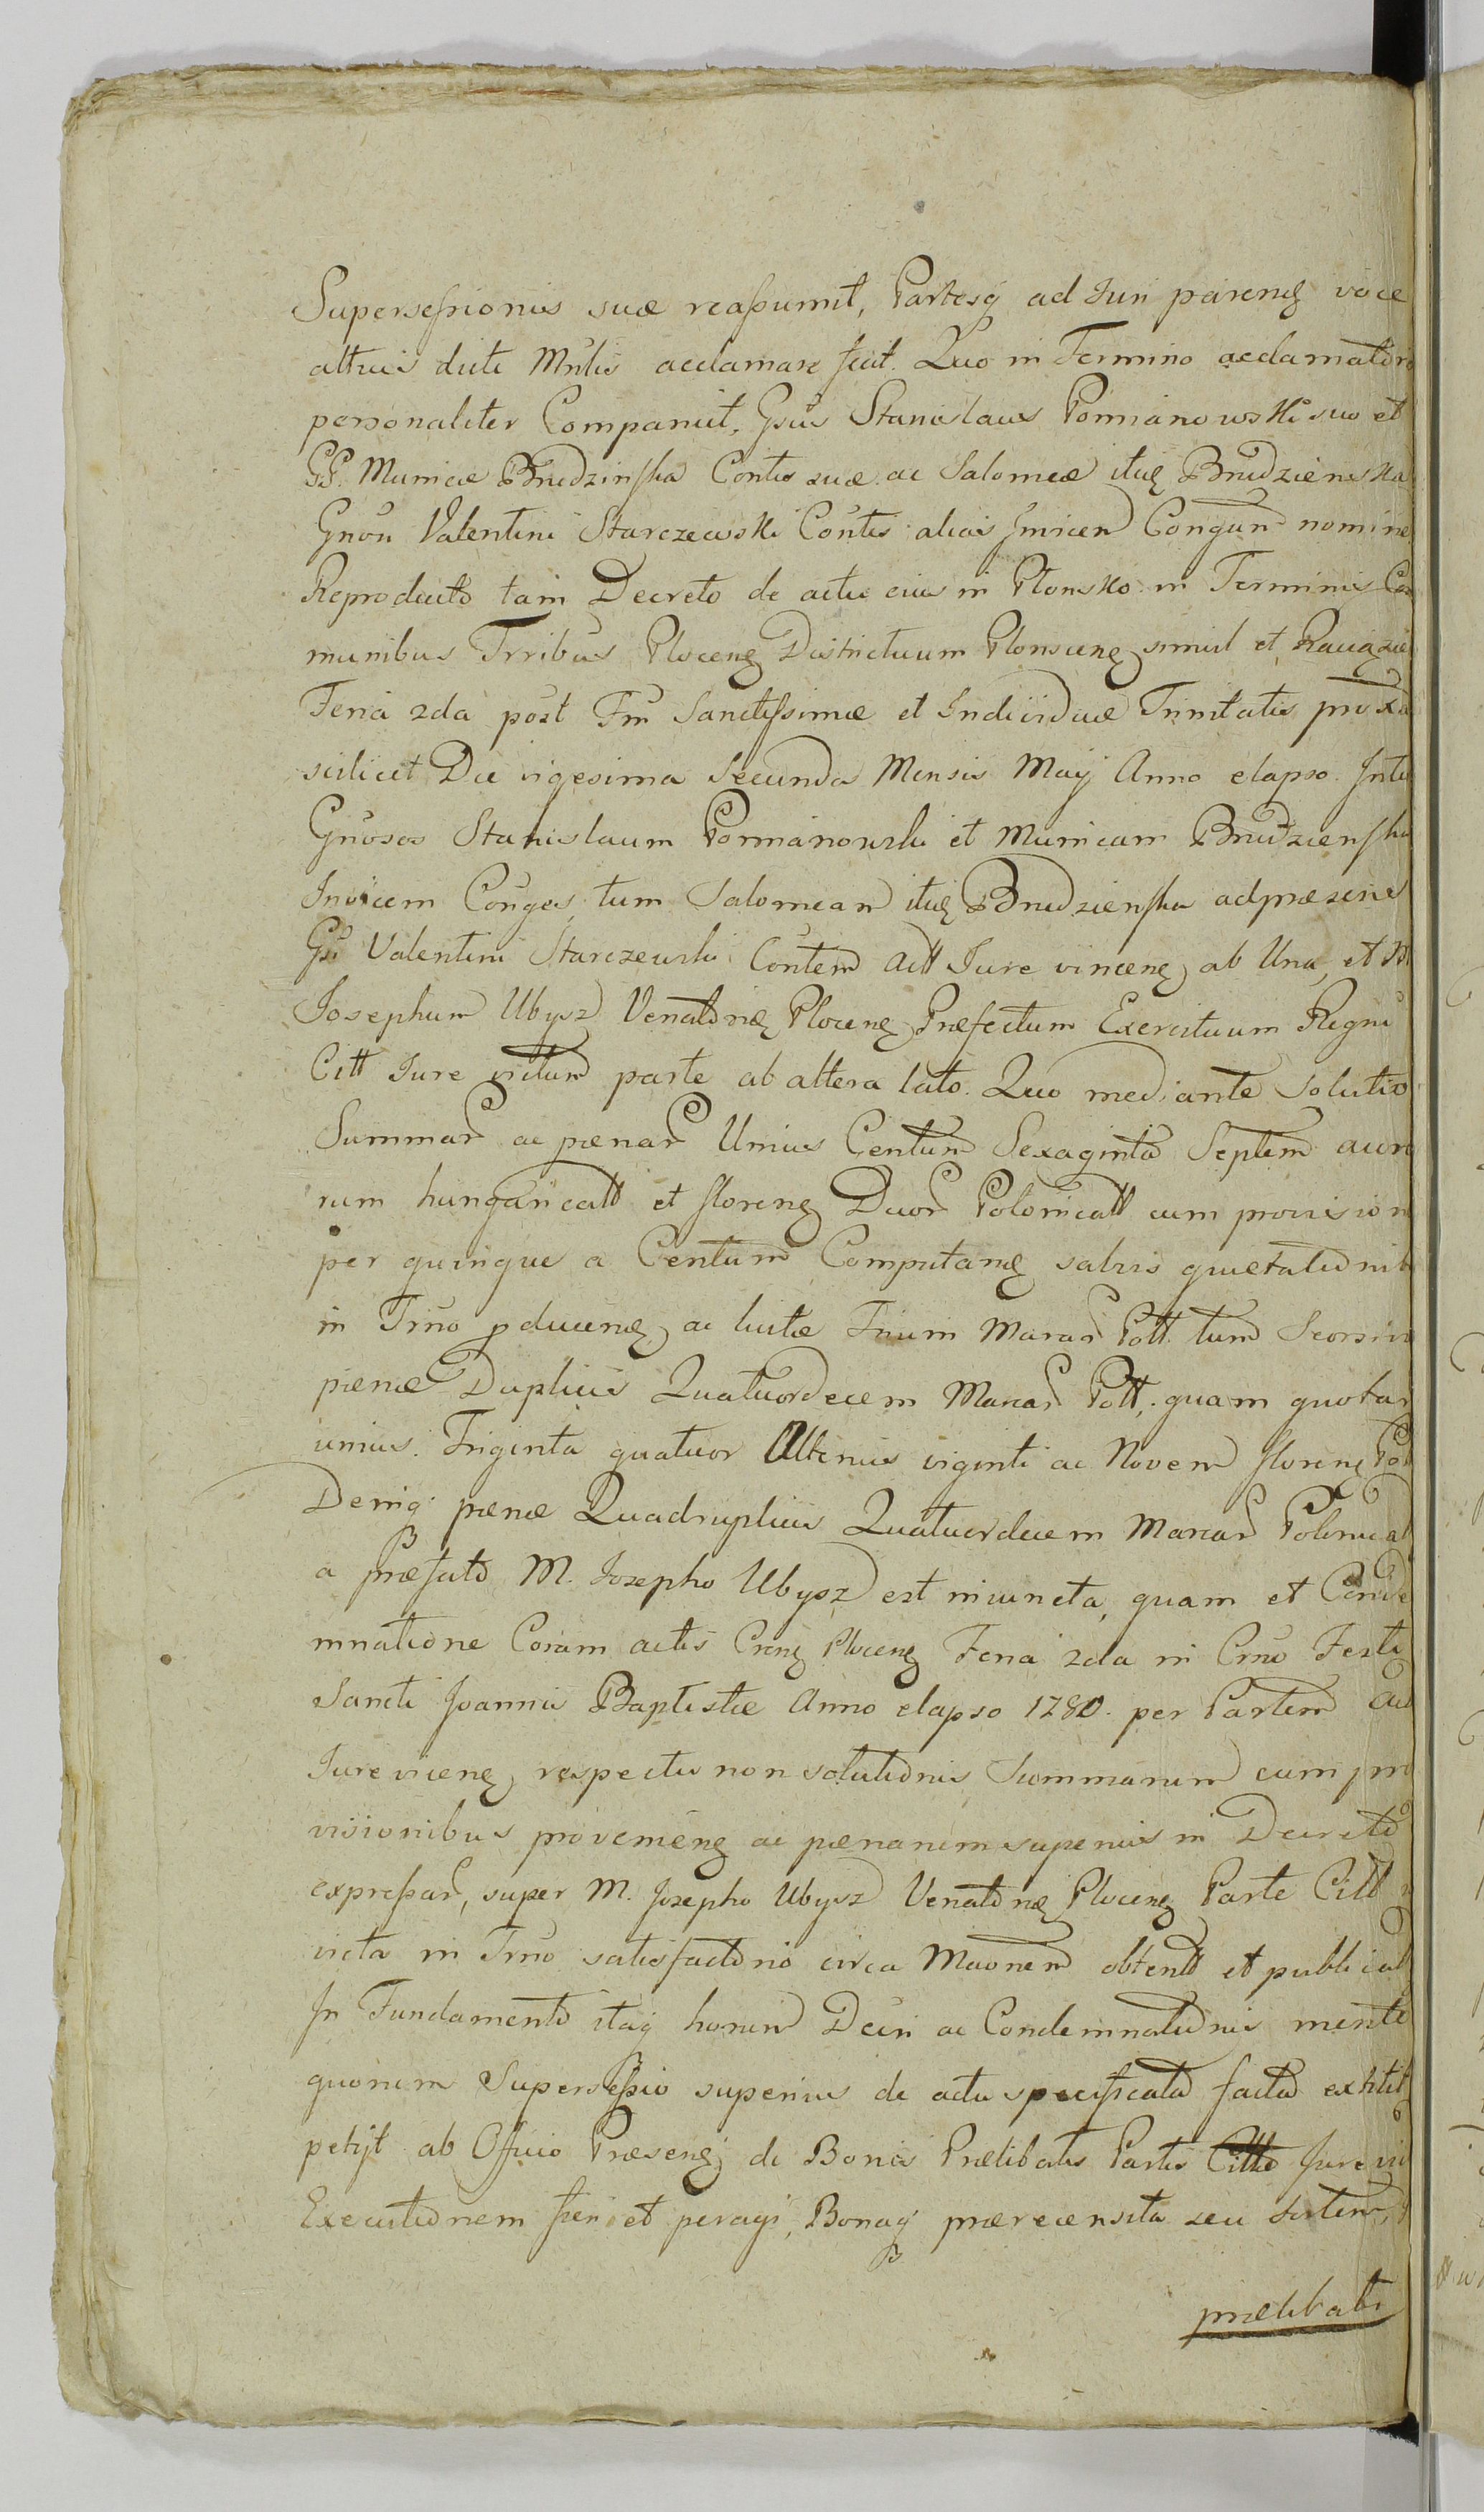 Supersessionis suæ reassumit, Partesq ad Juri pareng voce
altius dicti Mnlis acclamare fecit. Quo in Termino acclamatorio
personaliter Comparuit, Gsus Stanislaus Pomianowski suo et
GG. Mariæ Brudzinska Contis suæ ac Salomeæ itue Brudzienska
Gnou Valentini Starczewski Contis alias Invicem Congum nomine
Reproducto tam Decreto de actu eius in Plonsko in Terminis Co
munibus Trribus Ploceng Districtuum Plonsceng simul et Raciąże
Feria 2da post Fm Sanctissimæ et Individuæ Trinitatis proxa
scilicet Die vigesima Secunda Mensis Maij Anno elapso. Inte
Gnosos Stanislaum Pomianowski et Mariam Brudziensk
Invicem Conges, tum Salomeam itue Brudzienska ad præsens
Gsi Valentini Starczewski Contem Actt Jure vinceng ab Una, et M
Josephum Ubysz Venatoriæ Ploceng Præfectum Exercituum Regni
Citt Jure victum parte ab altera lato. Quo mediante solutio
Summar ac pænar Unius Centum Sexaginta Septem aure
rum hungaricatt et floreng Duor Polonicatt cum provision
per quinque a Centum Computang salvis quietationib
in Trno pduceng, ac luitæ Trium Marar Pott. tum Seorsiv
pænæ Duplicis Quatuordecem Marcar Pott, quam quotar
unius Triginta quatuor Alterius viginti ac Novem floreng Pol
Deniq pænæ Quadruplicis Quatuordecem Marcar Polonicat
a præfato M. Josepho Ubysz est iniuncta, quam et Conde
mnatione Coram actis Creng Ploceng Feria 2da in Crno Festi
Sancti Joannis Baptistæ Anno elapso 1780. per Partem Act
Jure viceng, respectu non solutionis Summarum cum pro
visionibus provenieng ac pænarum superius in Decreto
expressar, super M. Josepho Ubysz Venatoriæ Ploceng Parte Citt
victa in Trno satisfactorio circa Maonem obtentt et publicat
In Fundamento itaq horum Decri ac Condemnationis mente
quorum Supersessio superius de actu specificata facta extitit
petijt ab Officio Præseng de Bonis Prælibatis Partis Citt Jure vi
Executionem fieri et peragi, Bonaq præreceensita seu Sortem,
prælibati